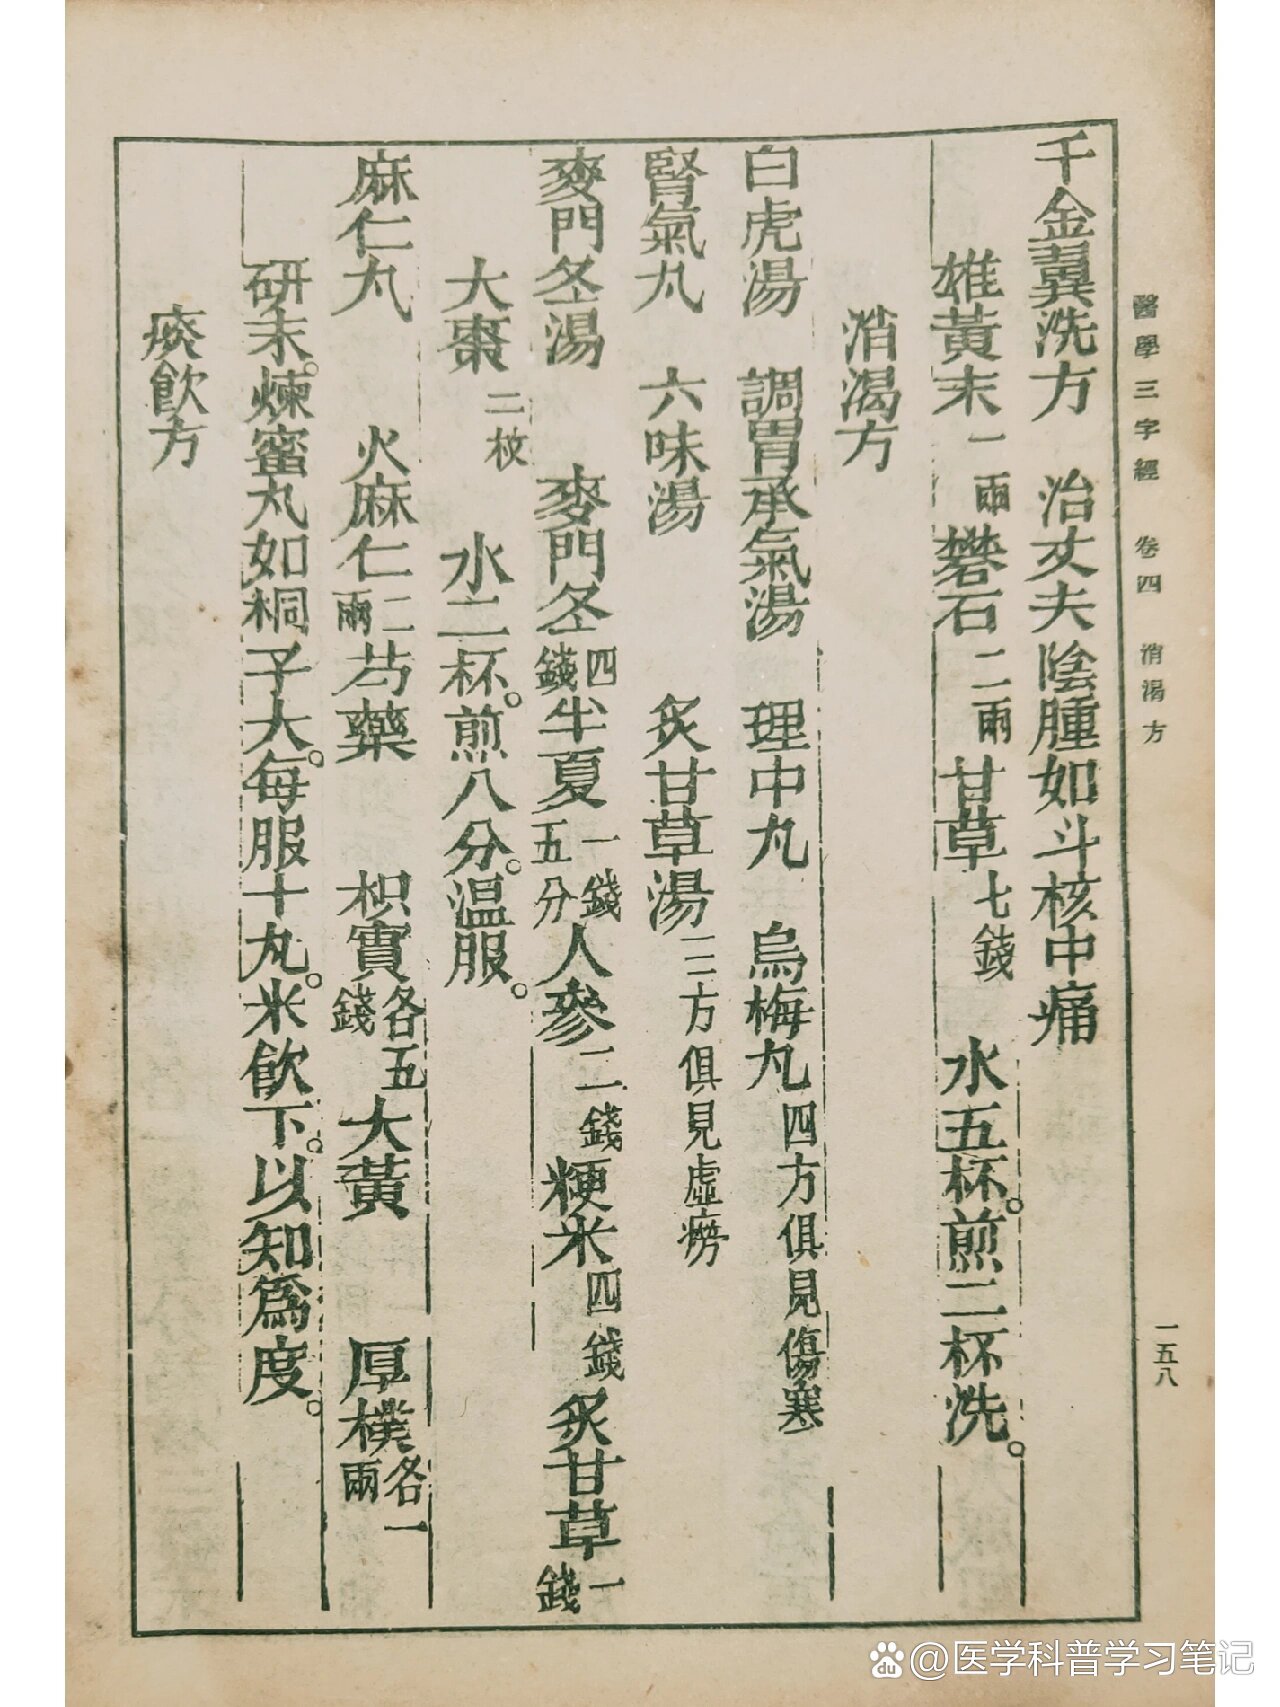 醫學三字經　卷四　消渴方
一五八
千金翼洗方　治丈夫陰腫如斗核中痛
雄黃末一兩礬石二兩甘草七錢　水五杯。煎二杯洗。
消渴方
白虎湯　調胃承氣湯　理中丸　烏梅丸四方俱見傷寒
腎氣丸　六味湯　炙甘草湯三方俱見虛癆
麥門冬湯　麥門冬四錢半夏一錢五分人參二錢粳米四錢炙甘草一錢
大棗二枚　水二杯。煎八分。溫服。
麻仁丸　火麻仁二兩芍藥　枳實各五錢大黃　厚樸各一兩
研末。煉蜜丸如桐子大。每服十丸。米飲下。以知爲度。
痰飲方
du @医学科普学习笔记